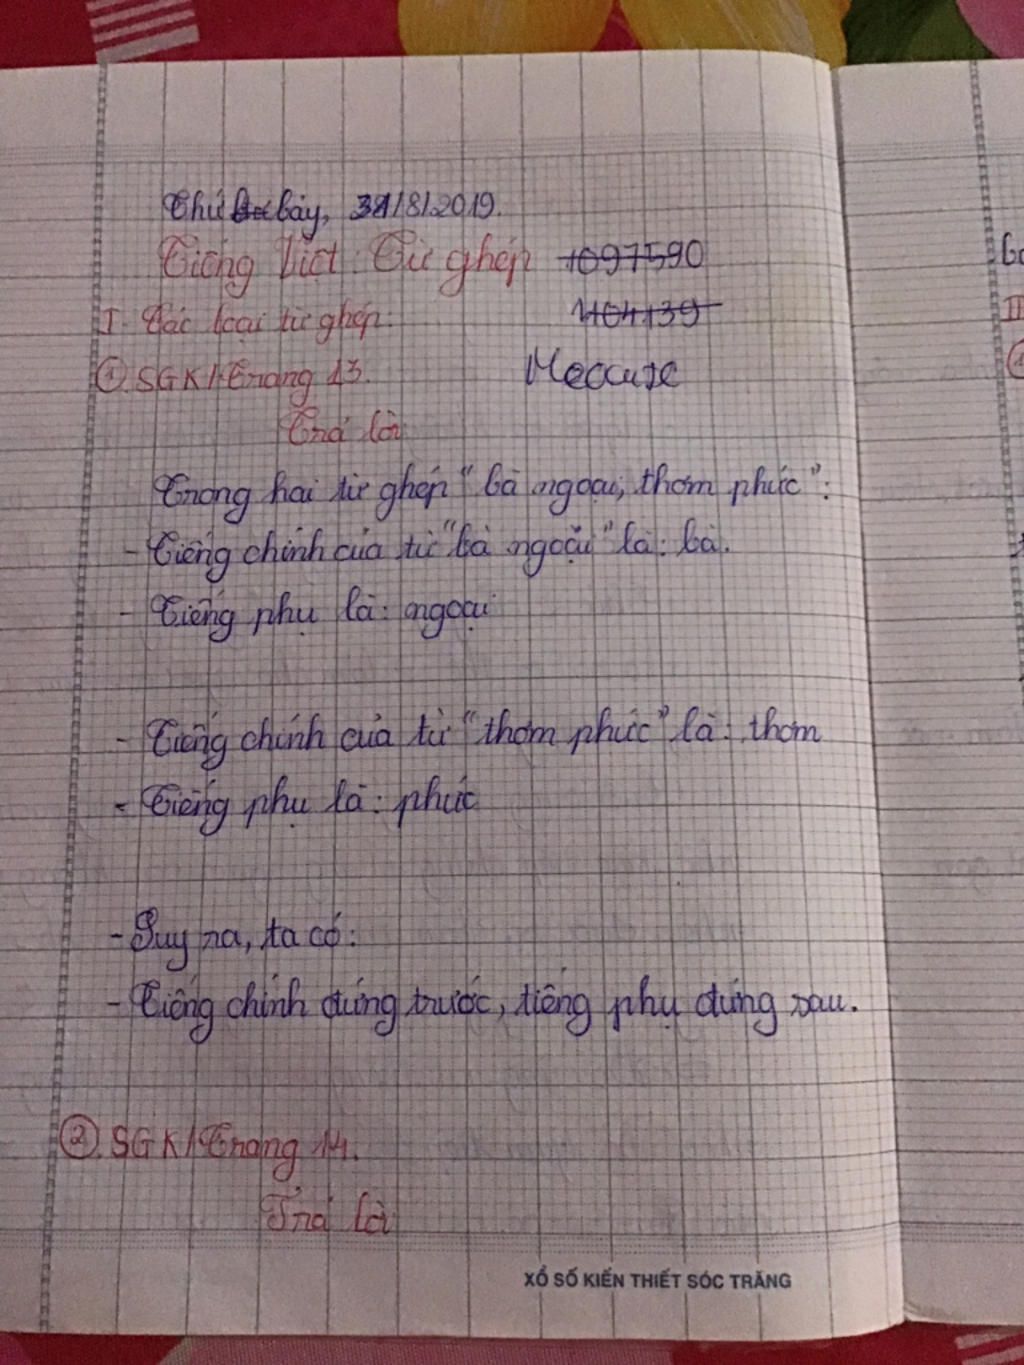 Thứ bảy, 31/8/2019.
Tiếng Việt: Từ ghép 1097590
I. Các loại từ ghép. 1104139
①. SGK/Trang 13.
Trả lời
Trong hai từ ghép "bà ngoại, thơm phức":
- Tiếng chính của từ "bà ngoại" là: bà.
- Tiếng phụ là: ngoại
- Tiếng chính của từ "thơm phức" là: thơm
- Tiếng phụ là: phức
- Suy ra, ta có:
- Tiếng chính đứng trước, tiếng phụ đứng sau.
②. SGK/Trang 14.
Trả lời
XỔ SỐ KIẾN THIẾT SÓC TRĂNG